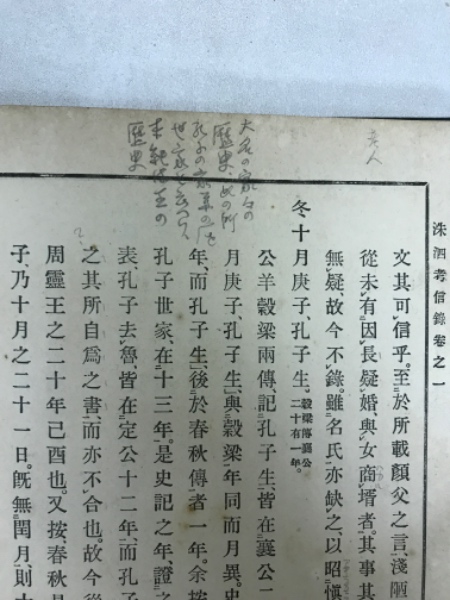 洙泗考信錄卷之一
文其可信乎。至於所載顏父之言、淺陋
從未有因長疑婚、與女商壻者。其事其
無疑、故今不錄。雖名氏亦缺之、以昭愼
冬十月庚子、孔子生。穀梁傳襄公二十有一年。
公羊穀梁兩傳、記孔子生、皆在襄公二
月庚子、孔子生、與穀梁年同而月異。史
年、而孔子生、後於春秋傳者一年。余按
孔子世家、在十三年。是史記之年、證之
表、孔子去魯、皆在定公十二年、而孔子
之其所自爲之書、而亦不合也。故今後
周靈王之二十年己酉也。又按春秋是
子、乃十月之二十一日。旣無閏月、則十
大名の家々の
歷史、此の所
孔子の家系の
世家と云ふ
歷史